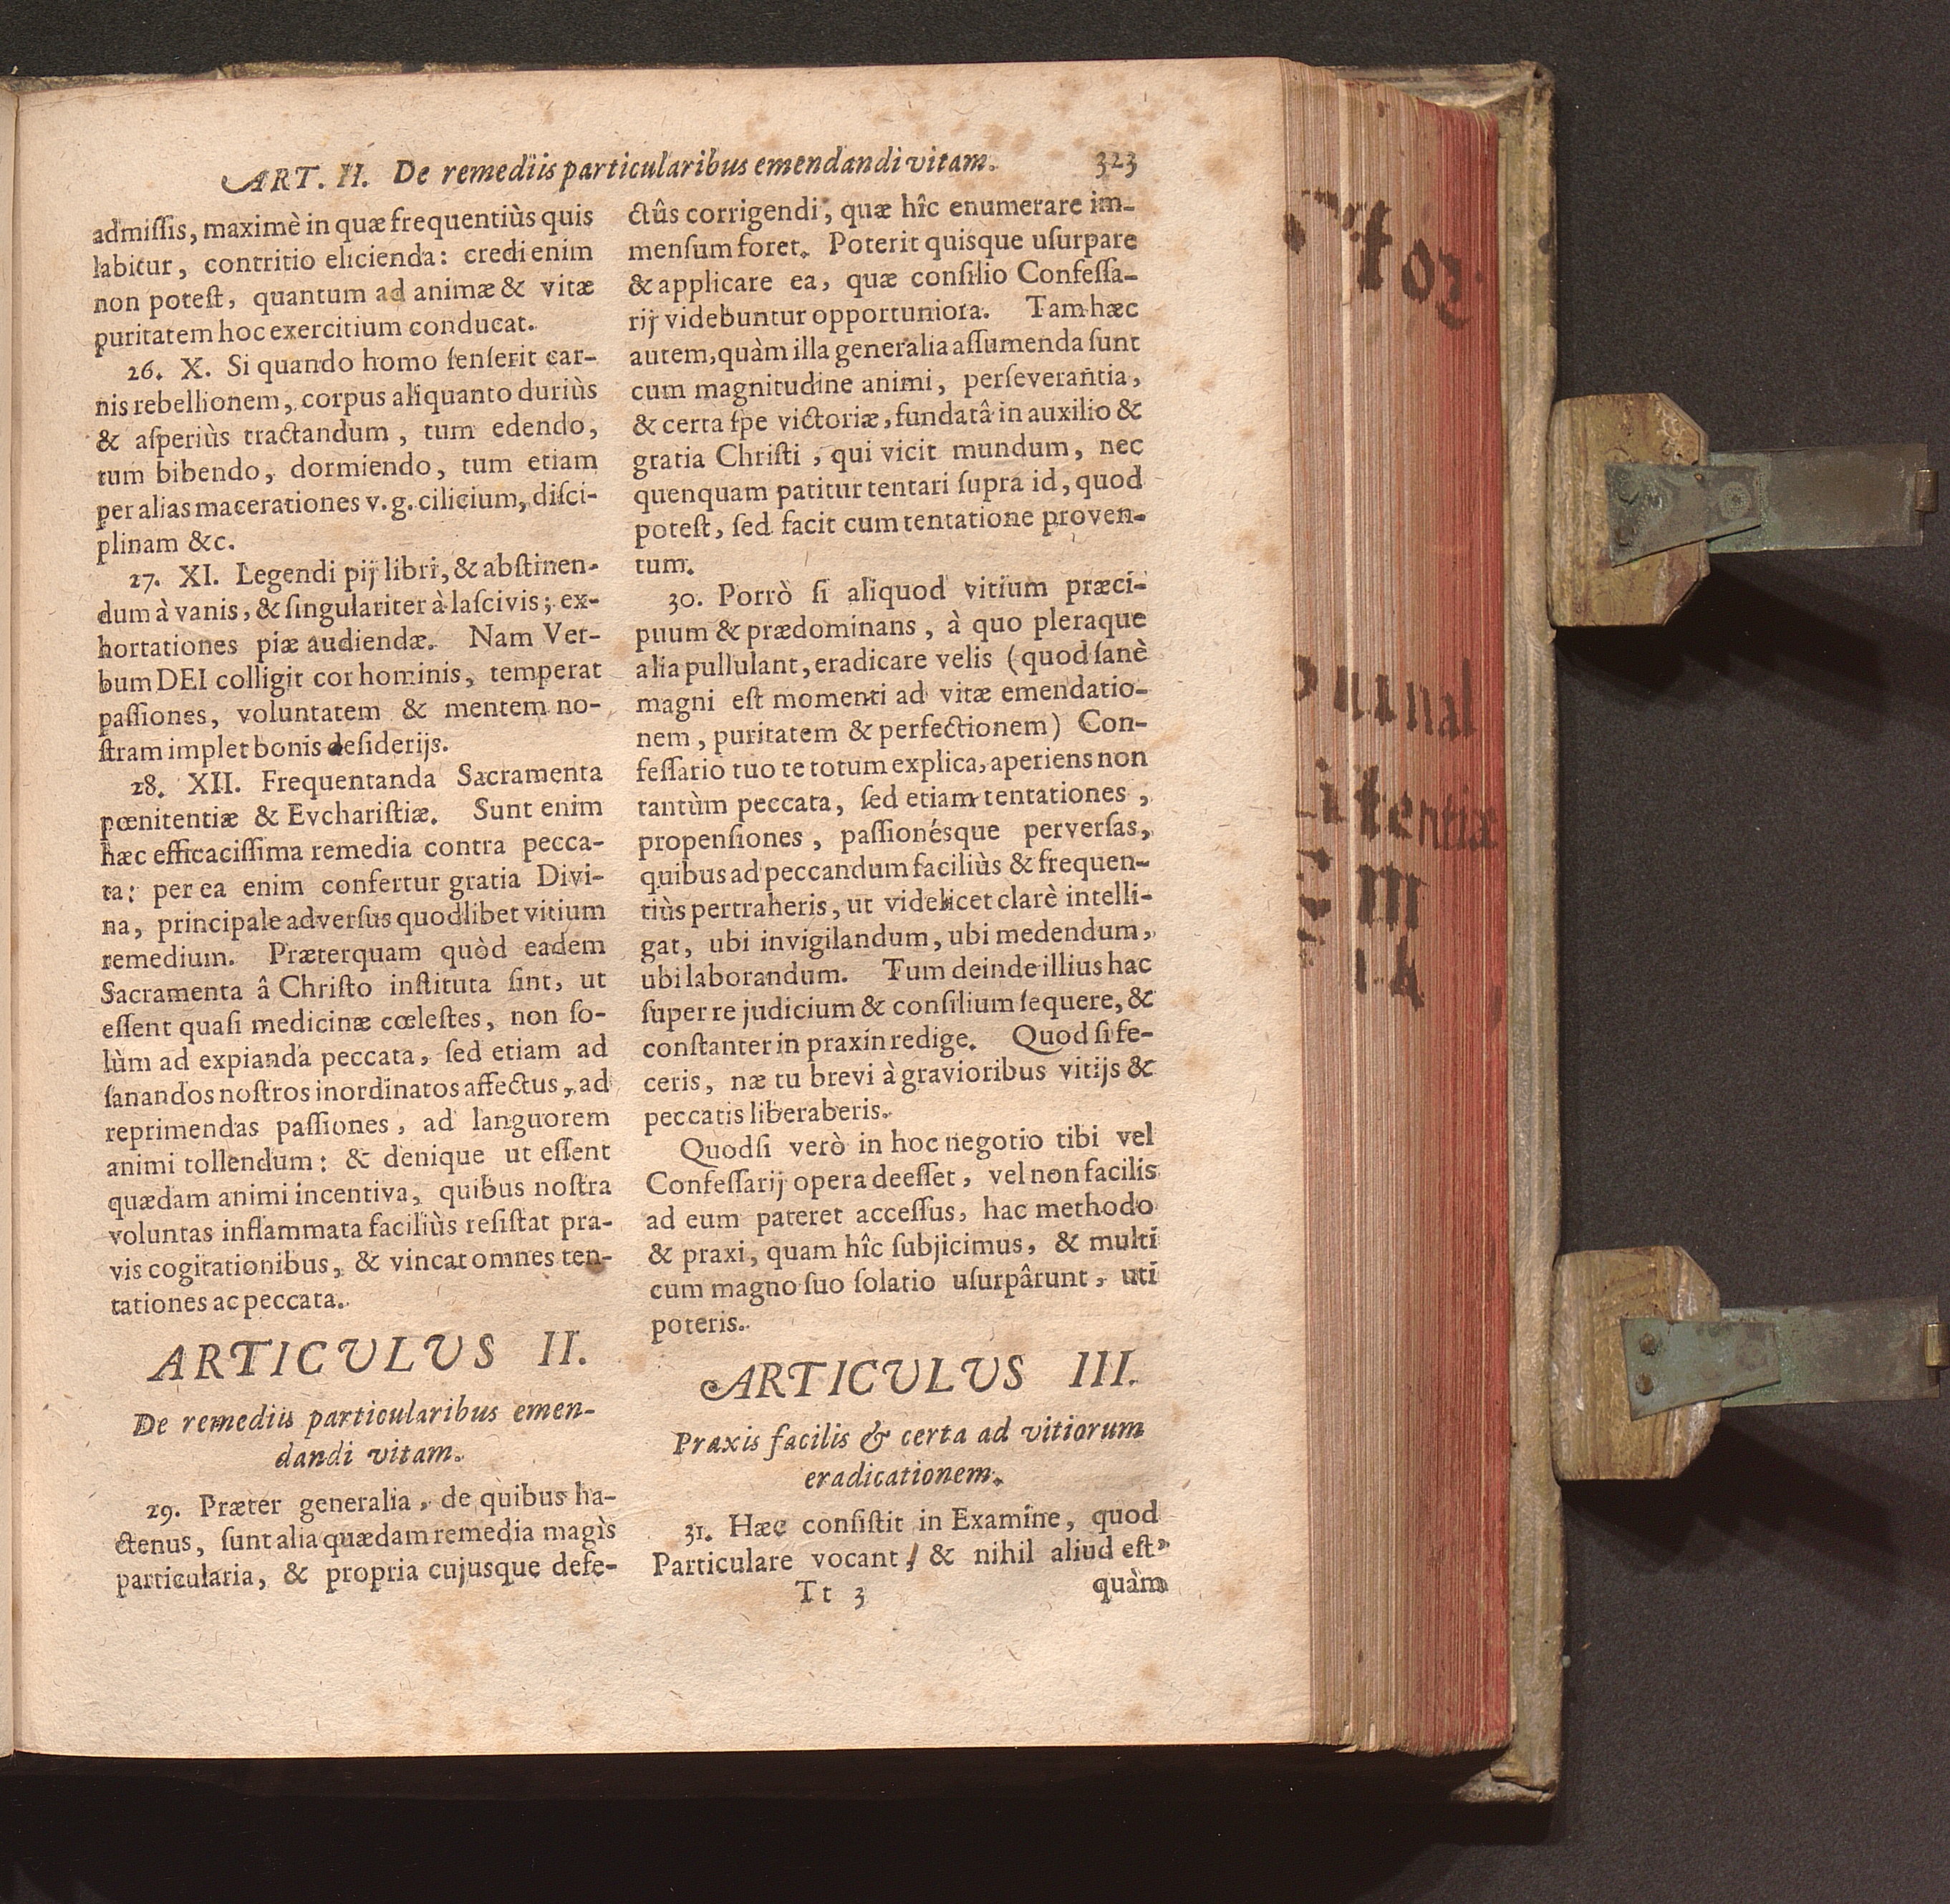 ART. II. De remediis particularibus emendandi vitam. 323
admiſſis, maximè in quæ frequentiùs quis
labitur, contritio elicienda: credi enim
non poteſt, quantum ad animæ & vitæ
puritatem hoc exercitium conducat.
26. X. Si quando homo ſenſerit car-
nis rebellionem, corpus aliquanto duriùs
& aſperiùs tractandum, tum edendo,
tum bibendo, dormiendo, tum etiam
per alias macerationes v. g. cilicium, diſci-
plinam &c.
27. XI. Legendi pij libri, & abſtinen-
dum à vanis, & ſingulariter à laſcivis; ex-
hortationes piæ audiendæ. Nam Ver-
bum DEI colligit cor hominis, temperat
paſſiones, voluntatem & mentem no-
ſtram implet bonis deſiderijs.
28. XII. Frequentanda Sacramenta
pœnitentiæ & Evchariſtiæ. Sunt enim
hæc efficaciſſima remedia contra pecca-
ta: per ea enim confertur gratia Divi-
na, principale adverſus quodlibet vitium
remedium. Præterquam quòd eadem
Sacramenta â Chriſto inſtituta ſint, ut
eſſent quaſi medicinæ cœleſtes, non ſo-
lùm ad expianda peccata, ſed etiam ad
ſanandos noſtros inordinatos affectus, ad
reprimendas paſſiones, ad languorem
animi tollendum: & denique ut eſſent
quædam animi incentiva, quibus noſtra
voluntas inflammata faciliùs reſiſtat pra-
vis cogitationibus, & vincat omnes ten-
tationes ac peccata.
ARTICULUS II.
De remediis particularibus emen-
dandi vitam.
29. Præter generalia, de quibus ha-
ctenus, ſunt alia quædam remedia magìs
particularia, & propria cujusque defe-
ctûs corrigendi, quæ hîc enumerare im-
menſum foret. Poterit quisque uſurpare
& applicare ea, quæ conſilio Confeſſa-
rij videbuntur opportuniora. Tam hæc
autem, quàm illa generalia aſſumenda ſunt
cum magnitudine animi, perſeverantia,
& certa ſpe victoriæ, fundatâ in auxilio &
gratia Chriſti, qui vicit mundum, nec
quenquam patitur tentari ſupra id, quod
poteſt, ſed facit cum tentatione proven-
tum.
30. Porrò ſi aliquod vitium præci-
puum & prædominans, à quo pleraque
alia pullulant, eradicare velis (quod ſanè
magni eſt momenti ad vitæ emendatio-
nem, puritatem & perfectionem) Con-
feſſario tuo te totum explica, aperiens non
tantùm peccata, ſed etiam tentationes,
propenſiones, paſſionésque perverſas,
quibus ad peccandum faciliùs & frequen-
tiùs pertraheris, ut videlicet clarè intelli-
gat, ubi invigilandum, ubi medendum,
ubi laborandum. Tum deinde illius hac
ſuper re judicium & conſilium ſequere, &
conſtanter in praxin redige. Quod ſi fe-
ceris, næ tu brevi à gravioribus vitijs &
peccatis liberaberis.
Quodſi verò in hoc negotio tibi vel
Confeſſarij opera deeſſet, vel non facilis
ad eum pateret acceſſus, hac methodo
& praxi, quam hîc ſubjicimus, & multi
cum magno ſuo ſolatio uſurpârunt, uti
poteris.
ARTICULUS III.
Praxis facilis & certa ad vitiorum
eradicationem.
31. Hæc conſiſtit in Examine, quod
Particulare vocant, & nihil aliud eſt
Tt 3 quàm